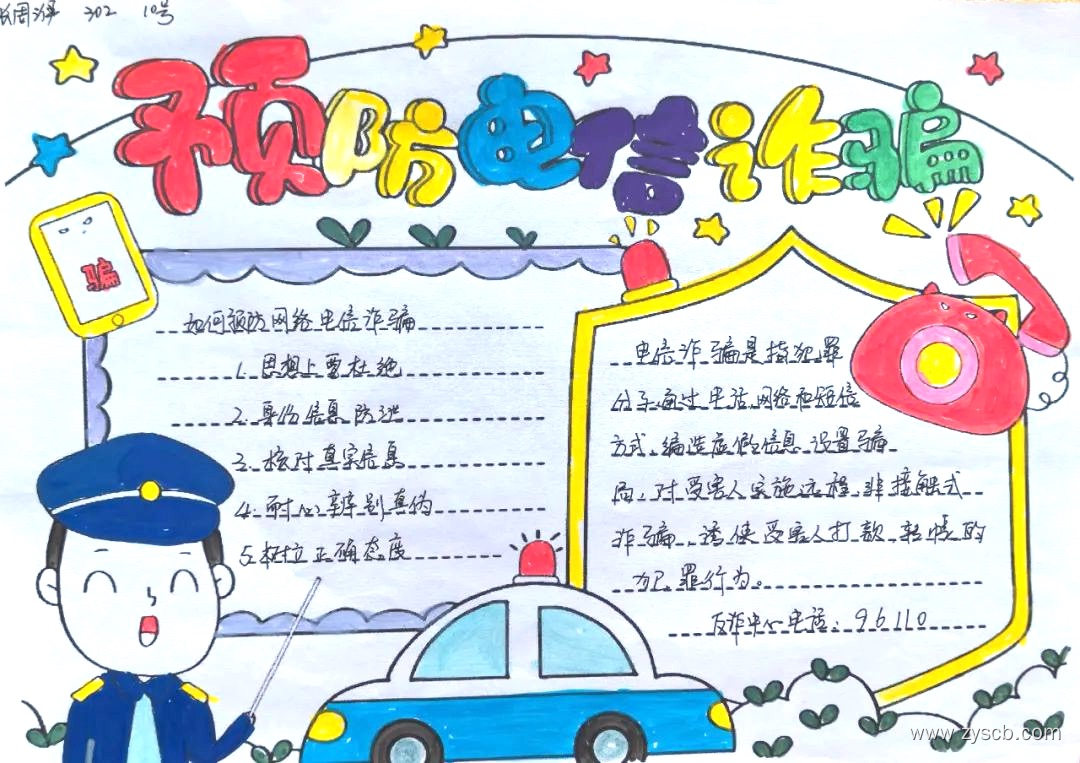 302 10号
预防电信诈骗
骗
如何预防网络电信诈骗
1.思想上要杜绝
2.身份信息防泄
3.核对真实信息
4.耐心辨别真伪
5.树立正确态度
电信诈骗是指犯罪
分子通过电话、网络和短信
方式,编造虚假信息,设置骗
局,对受害人实施远程、非接触式
诈骗,诱使受害人打款、转帐的
犯罪行为。
反诈中心电话:96110
www.zyscb.com